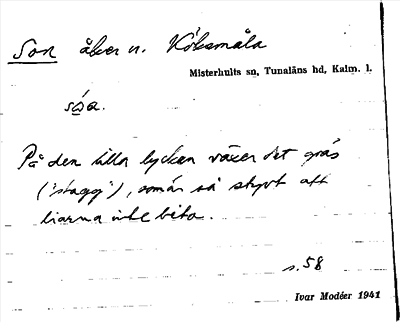 Son åker n. Köksmåla
Misterhults sn, Tunaläns hd, Kalm. l.
såa.
På den lilla lyckan växer det gräs
("stagg"), som är så styvt att
liarna inte bita.
s. 58
Ivar Modéer 1941